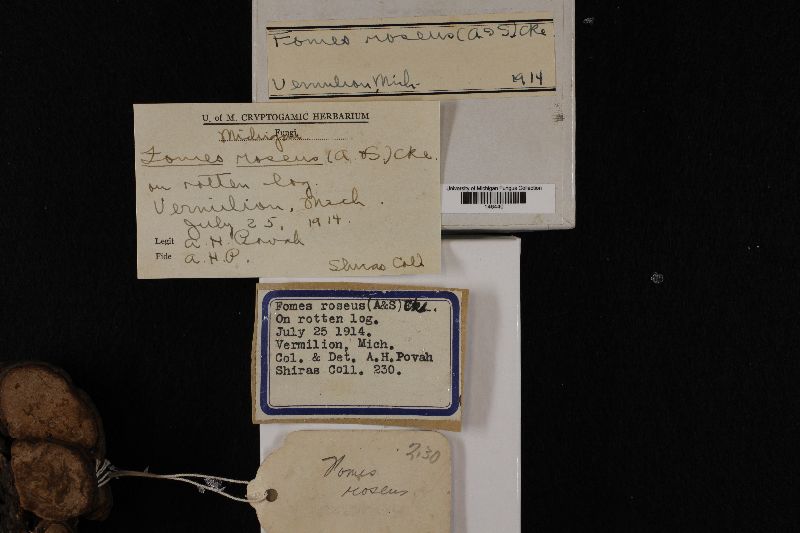 Fomes roseus (A & S) Cke.
Vermilion, Mich. 1914
U. of M. CRYPTOGAMIC HERBARIUM
Michigan
Fungi,
Fomes roseus (A & S) Cke.
on rotten log.
Vermilion, Mich.
July 25, 1914.
Legit A. H. Povah
Fide A. H. P.
Shiras Coll
University of Michigan Fungus Collection
Fomes roseus(A&S)Cke.
On rotten log.
July 25 1914.
Vermilion, Mich.
Col. & Det. A.H.Povah
Shiras Coll. 230.
230
Fomes
roseus